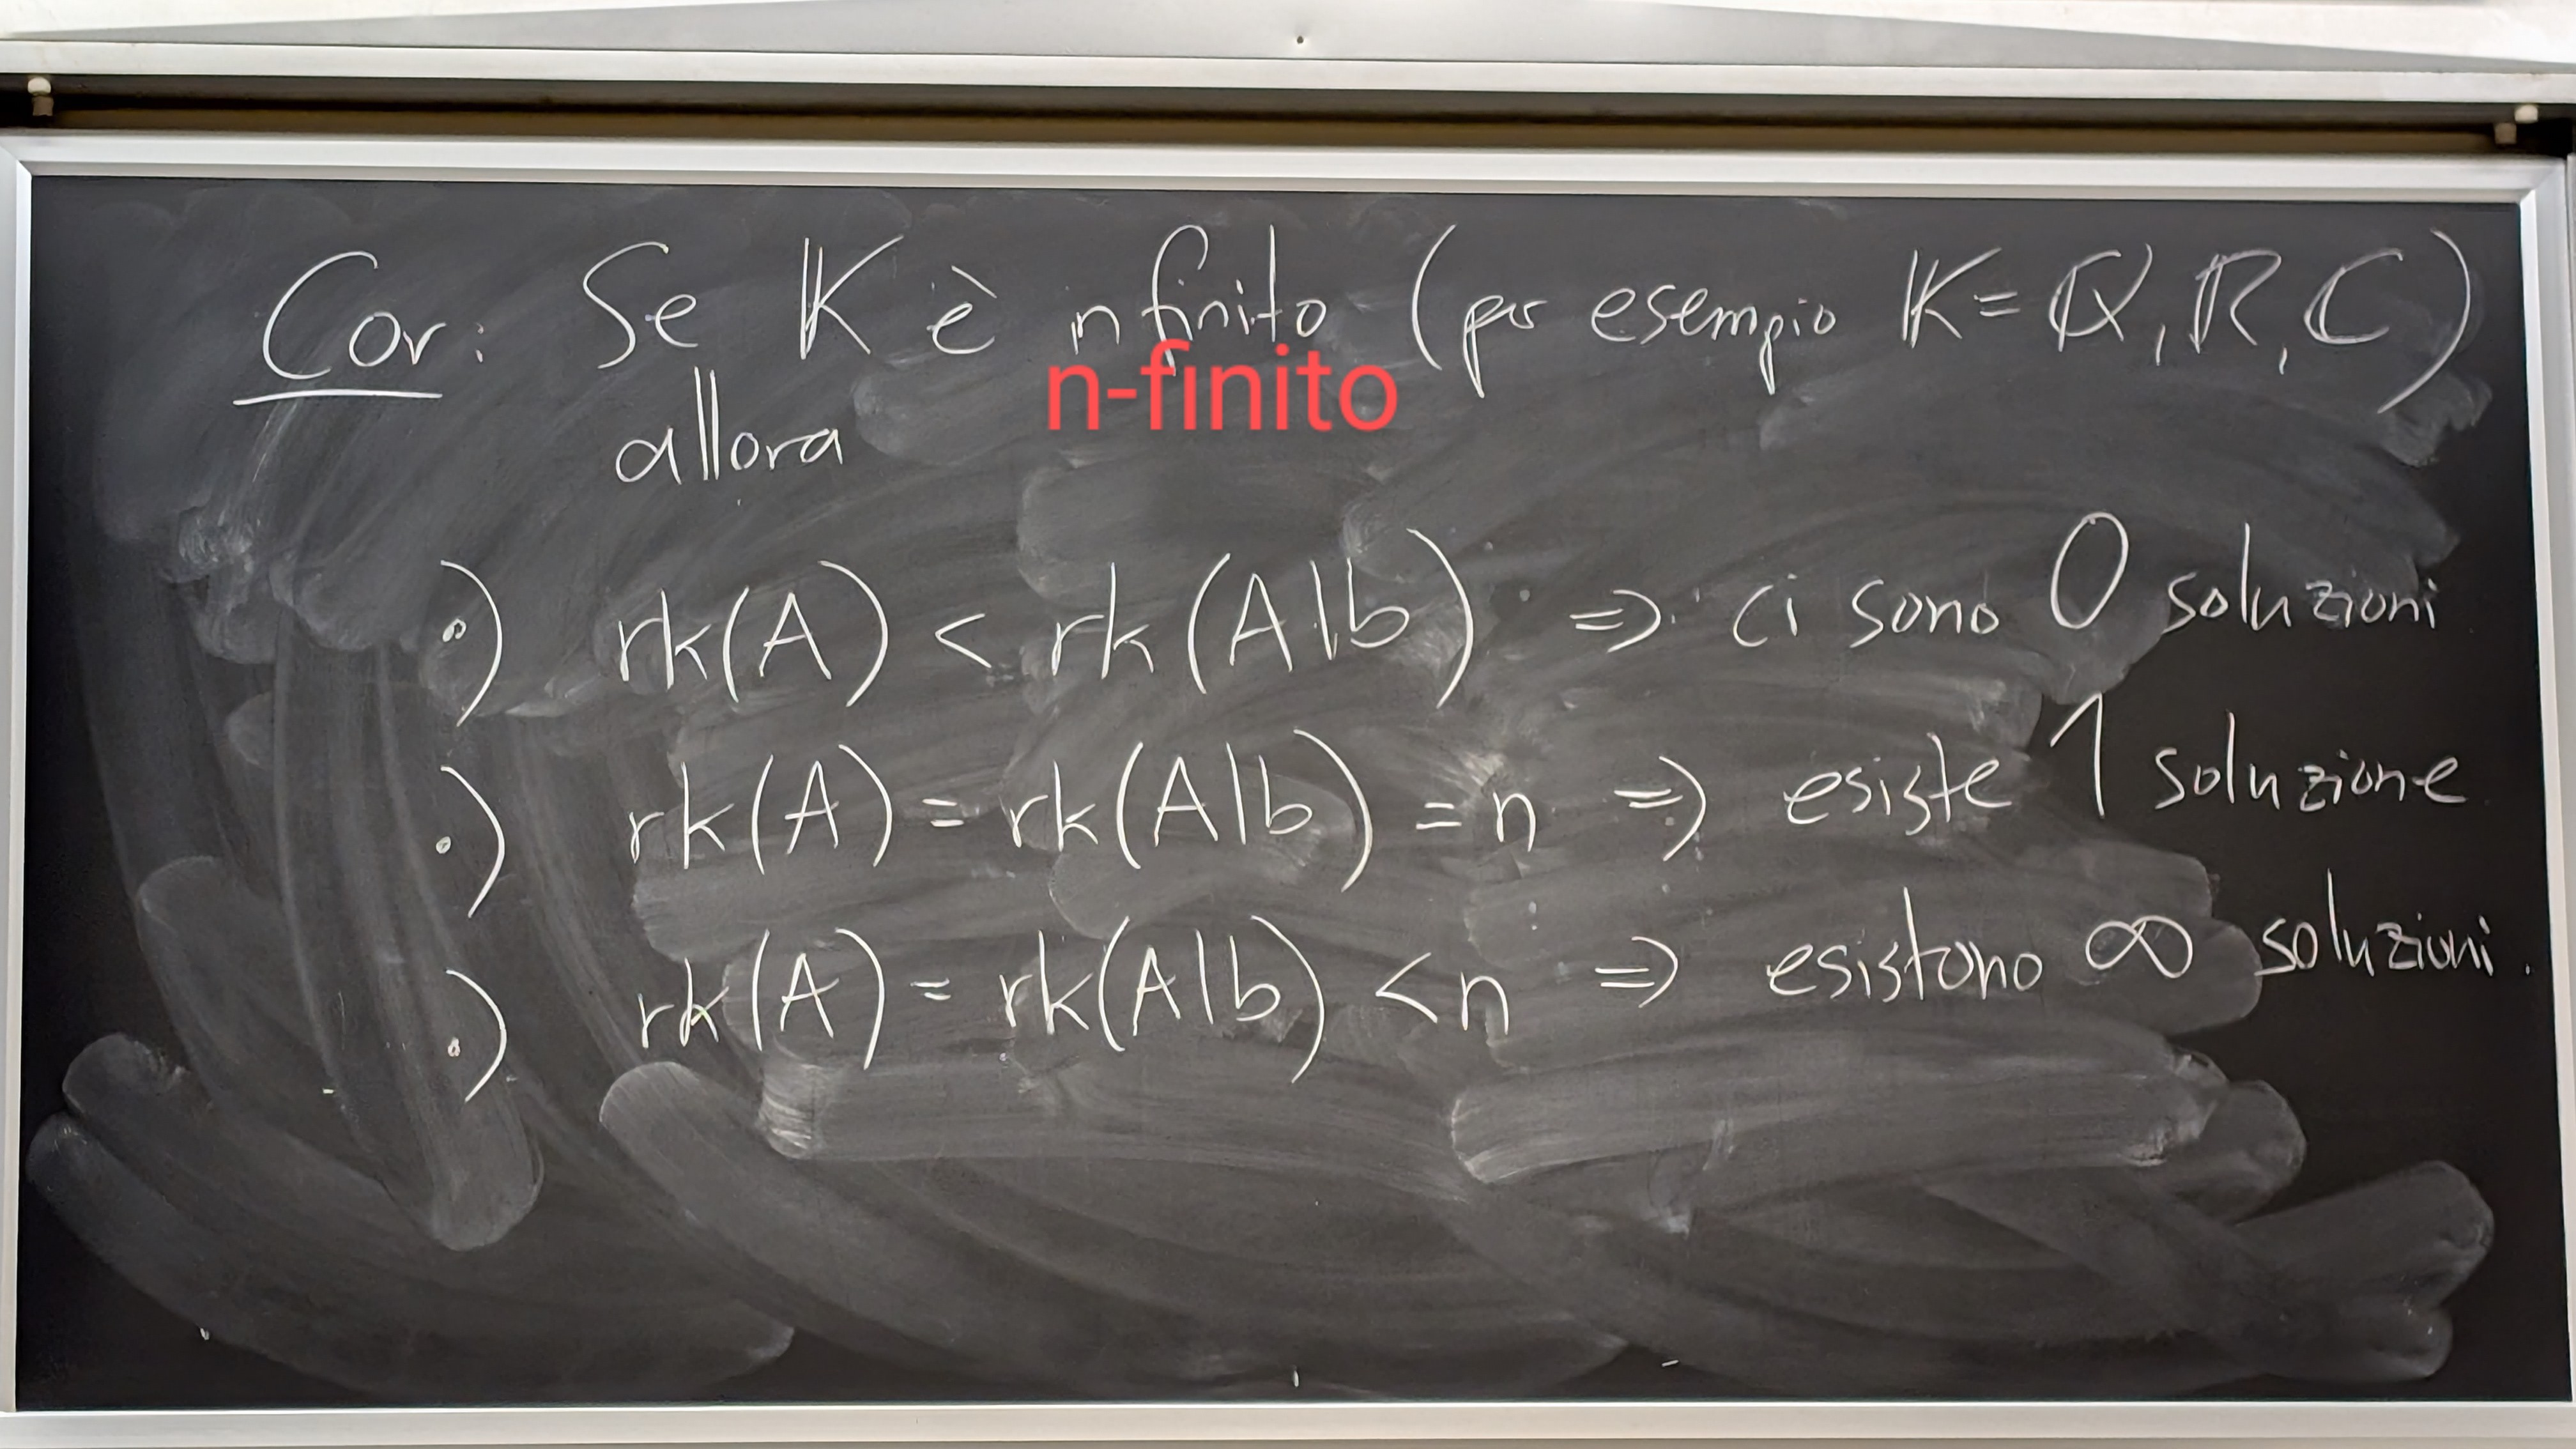 Cor: Se K è nfinito (per esempio K = Q, R, C)
n-finito
allora
•) rk(A) < rk(A|b) => ci sono 0 soluzioni
•) rk(A) = rk(A|b) = n => esiste 1 soluzione
•) rk(A) = rk(A|b) < n => esistono ∞ soluzioni.